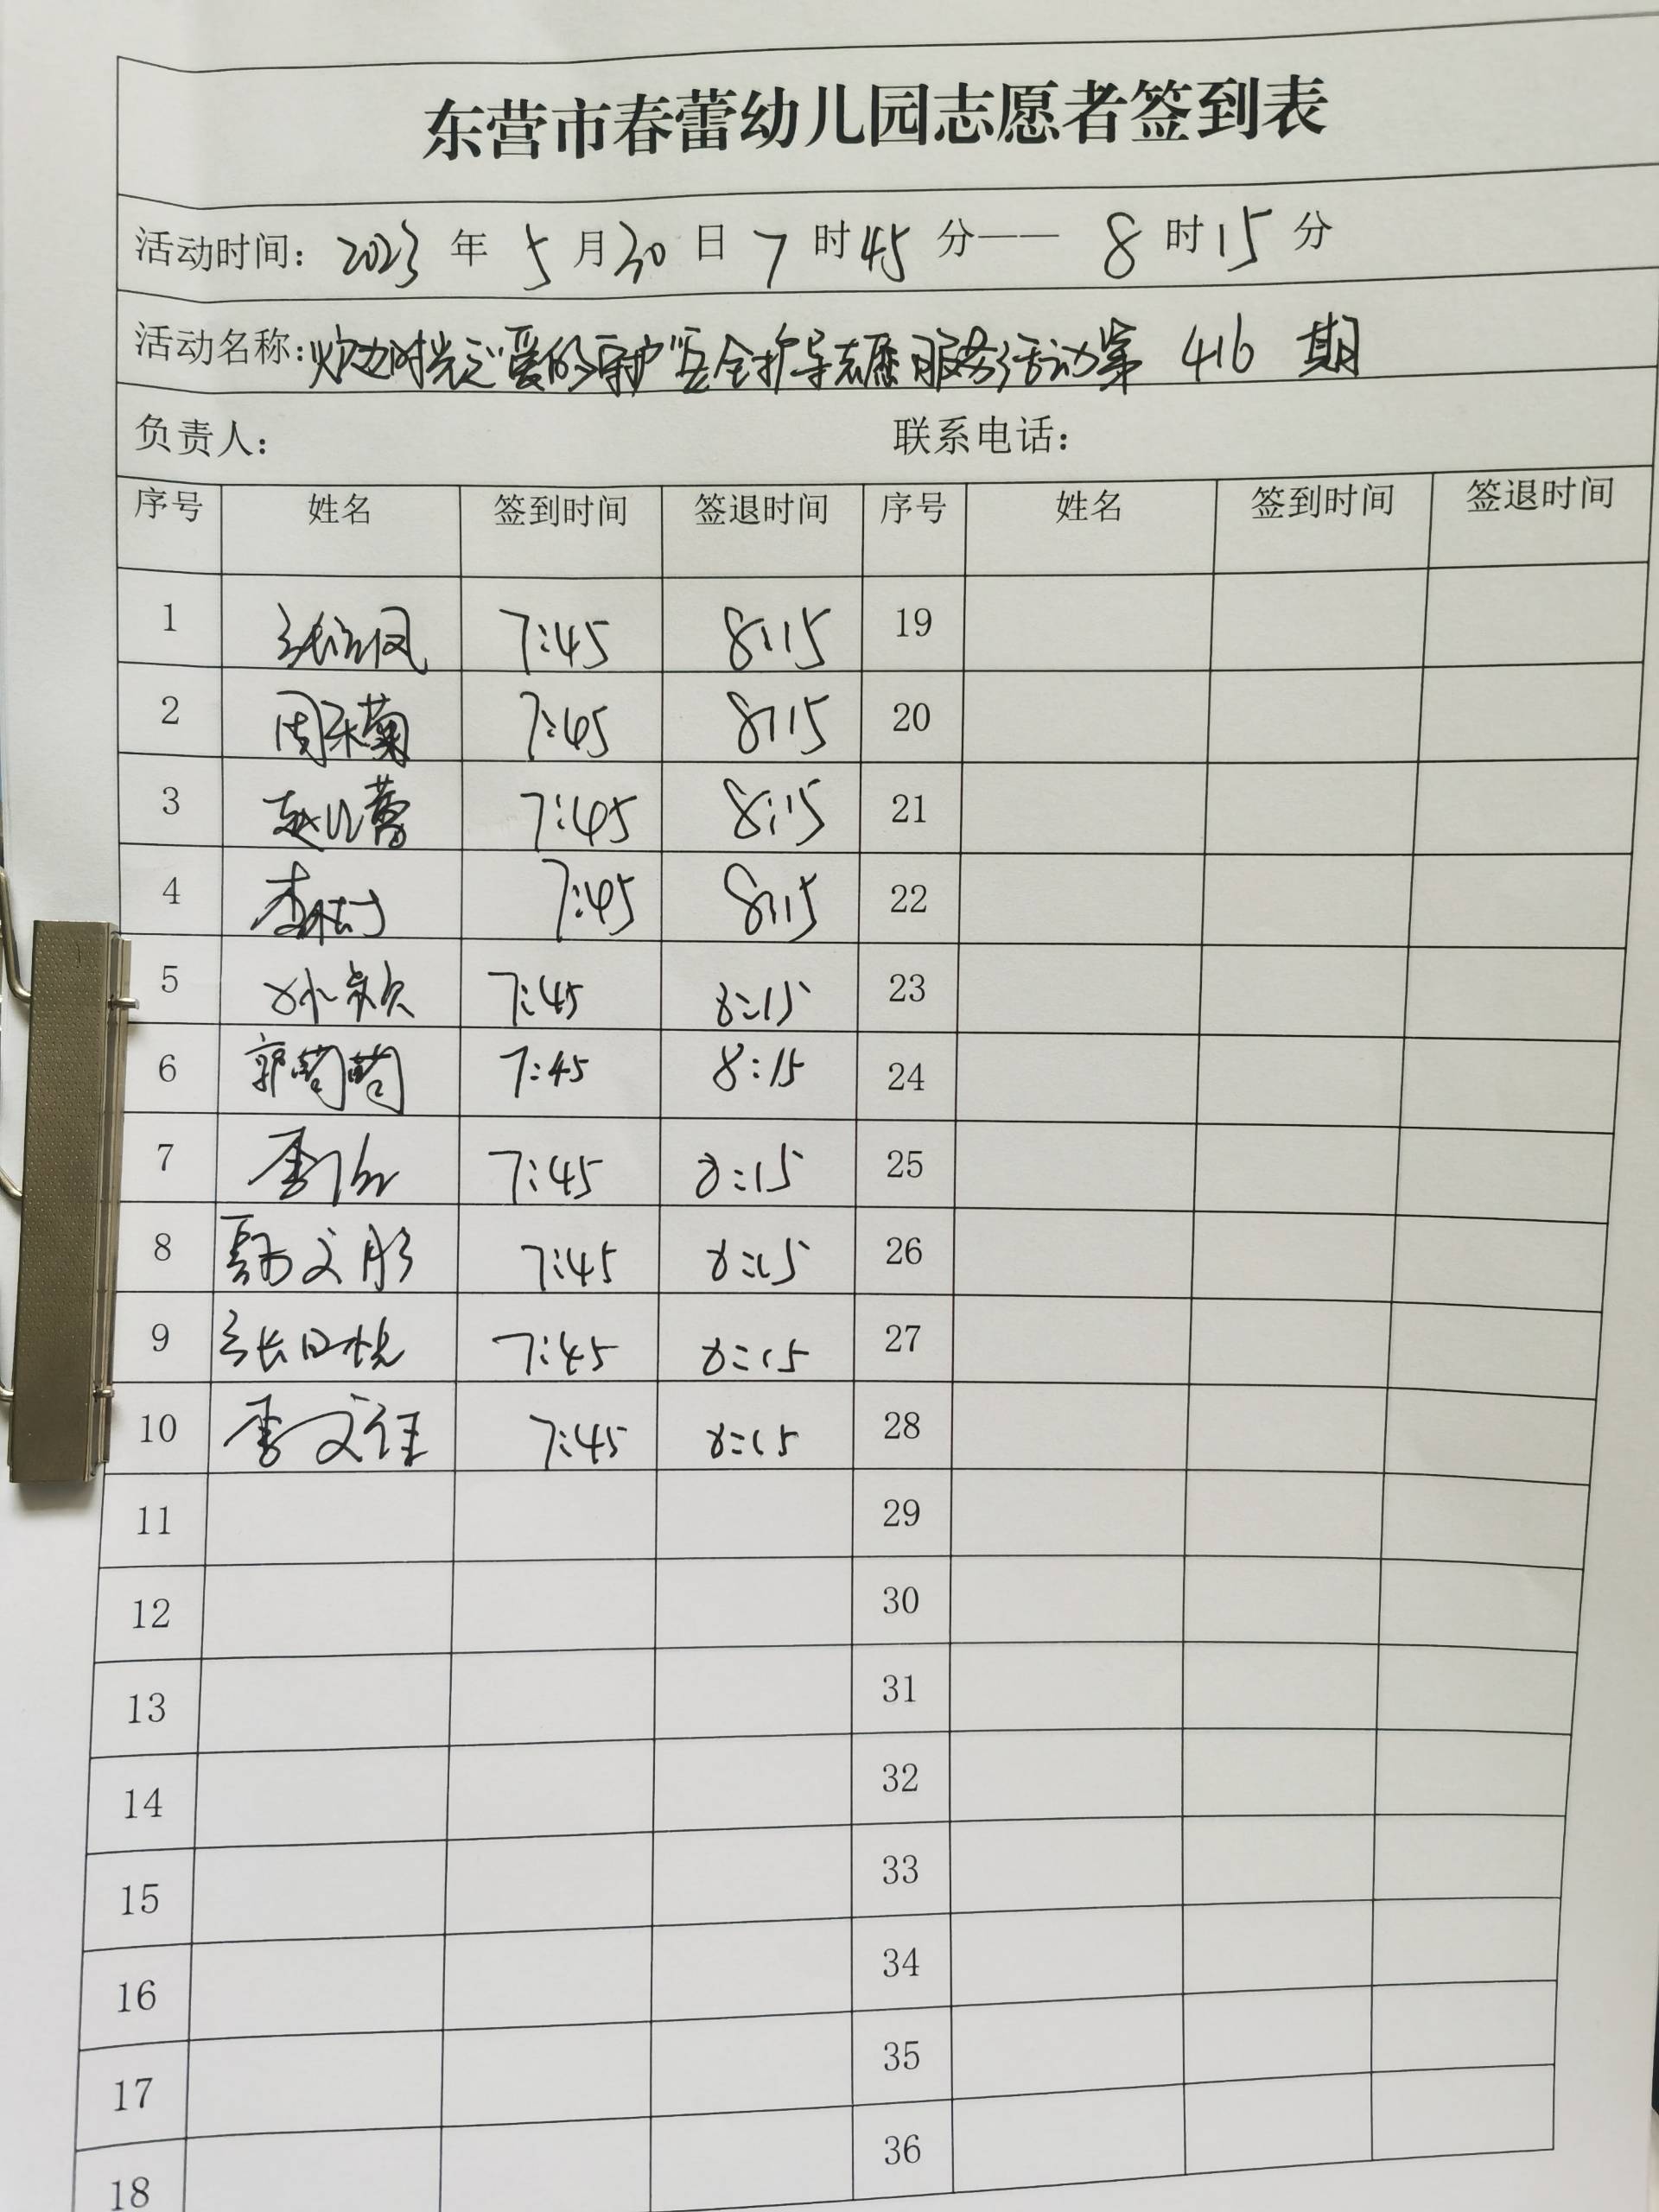 东营市春蕾幼儿园志愿者签到表
活动时间: 2023 年 5 月 30 日 7 时 45 分—— 8 时 15 分
活动名称: 时光之"爱的守护"安全护导志愿服务活动第 416 期
负责人: 联系电话:
序号 姓名 签到时间 签退时间 序号 姓名 签到时间 签退时间
1 7:45 8:15 19
2 周 菊 7:45 8:15 20
3 赵 蕾 7:45 8:15 21
4 李 7:45 8:15 22
5 孙颖 7:45 8:15 23
6 郭萄萄 7:45 8:15 24
7 季 7:45 8:15 25
8 文彤 7:45 8:15 26
9 张日悦 7:45 8:15 27
10 季文钰 7:45 8:15 28
11 29
12 30
13 31
14 32
15 33
16 34
17 35
18 36